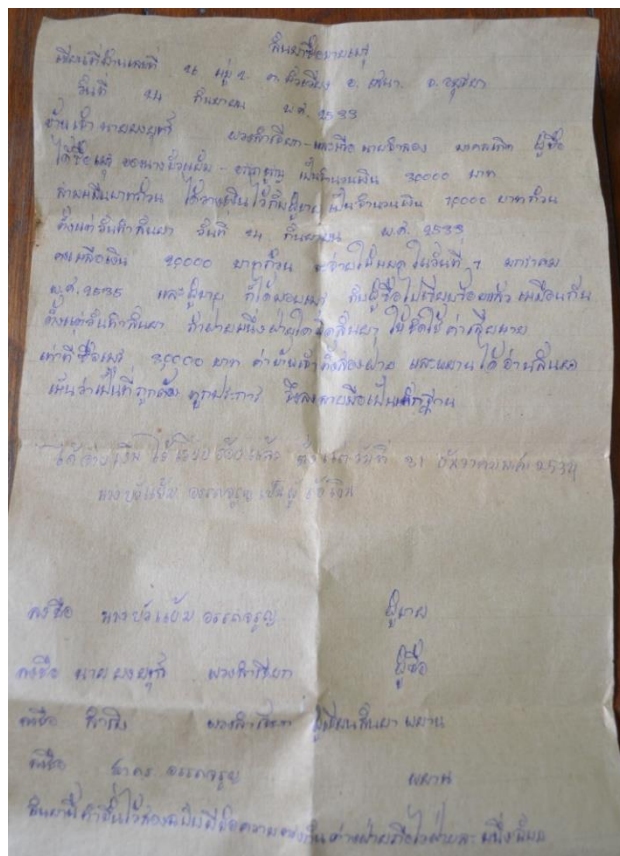 สัญญาซื้อขายแพ
เขียนที่บ้านเลขที่ 26 หมู่ 2 ต. อ. เสนา จ. อยุธยา
วันที่ 24 กันยายน พ.ศ. 2533
ข้าพเจ้า นาย ผู้ซื้อ
ได้ซื้อแพ ของนางบัวแย้ม เป็นจำนวนเงิน 30000 บาท
สามหมื่นบาทถ้วน ได้วางเงินไว้กับผู้ขาย เป็นจำนวนเงิน 10000 บาทถ้วน
ตั้งแต่วันทำสัญญา วันที่ 24 กันยายน พ.ศ. 2533
คงเหลือเงิน 20000 บาทถ้วน จะจ่ายให้หมด ในวันที่ 7 มกราคม
พ.ศ. 2535 และผู้ขาย ก็ได้มอบแพ กับผู้ซื้อไปเรียบร้อยแล้ว เหมือนกัน
ตั้งแต่วันทำสัญญา ถ้าฝ่ายหนึ่งฝ่ายใดผิดสัญญา ให้ ใช้ค่าเสียหาย
เท่าที่ซื้อแพ 30000 บาท ข้าพเจ้าทั้งสองฝ่าย และพยานได้อ่านสัญญา
เห็นว่าเป็นที่ถูกต้อง ทุกประการ จึงลงลายมือเป็นหลักฐาน
ได้จ่ายเงิน ให้เรียบร้อยแล้ว วันที่ 21 ธันวาคม 2534
นางบัวแย้ม เป็นผู้
ลงชื่อ นางบัวแย้ม ผู้ขาย
ลงชื่อ นาย ผู้ซื้อ
ลงชื่อ ผู้เขียนสัญญา พยาน
ลงชื่อ พยาน
สัญญานี้ทำขึ้นไว้สองฉบับมีข้อความตรงกัน ต่างฝ่ายถือไว้ฝ่ายละ หนึ่งฉบับ